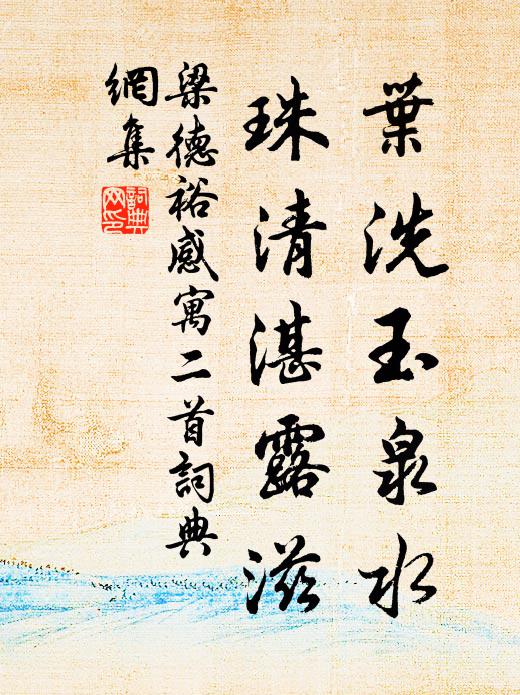 葉洗玉泉水
珠清湛露滋
梁德裕感寓二首詞典
網集
詞典
网印